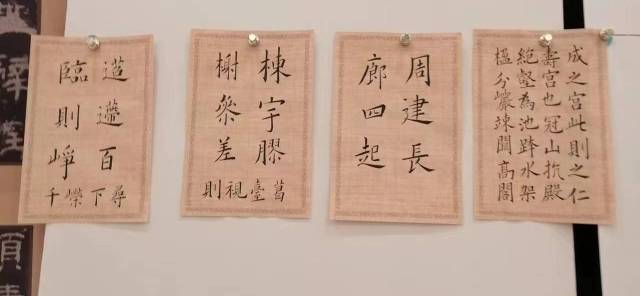 成之宫此則之仁
壽宫也冠山抗殿
絕壑為池跨水架
楹分巖竦闕高閣
周建長
廊四起
棟宇膠葛臺
榭叅差視則
迢遰百尋下
臨則崢榮千